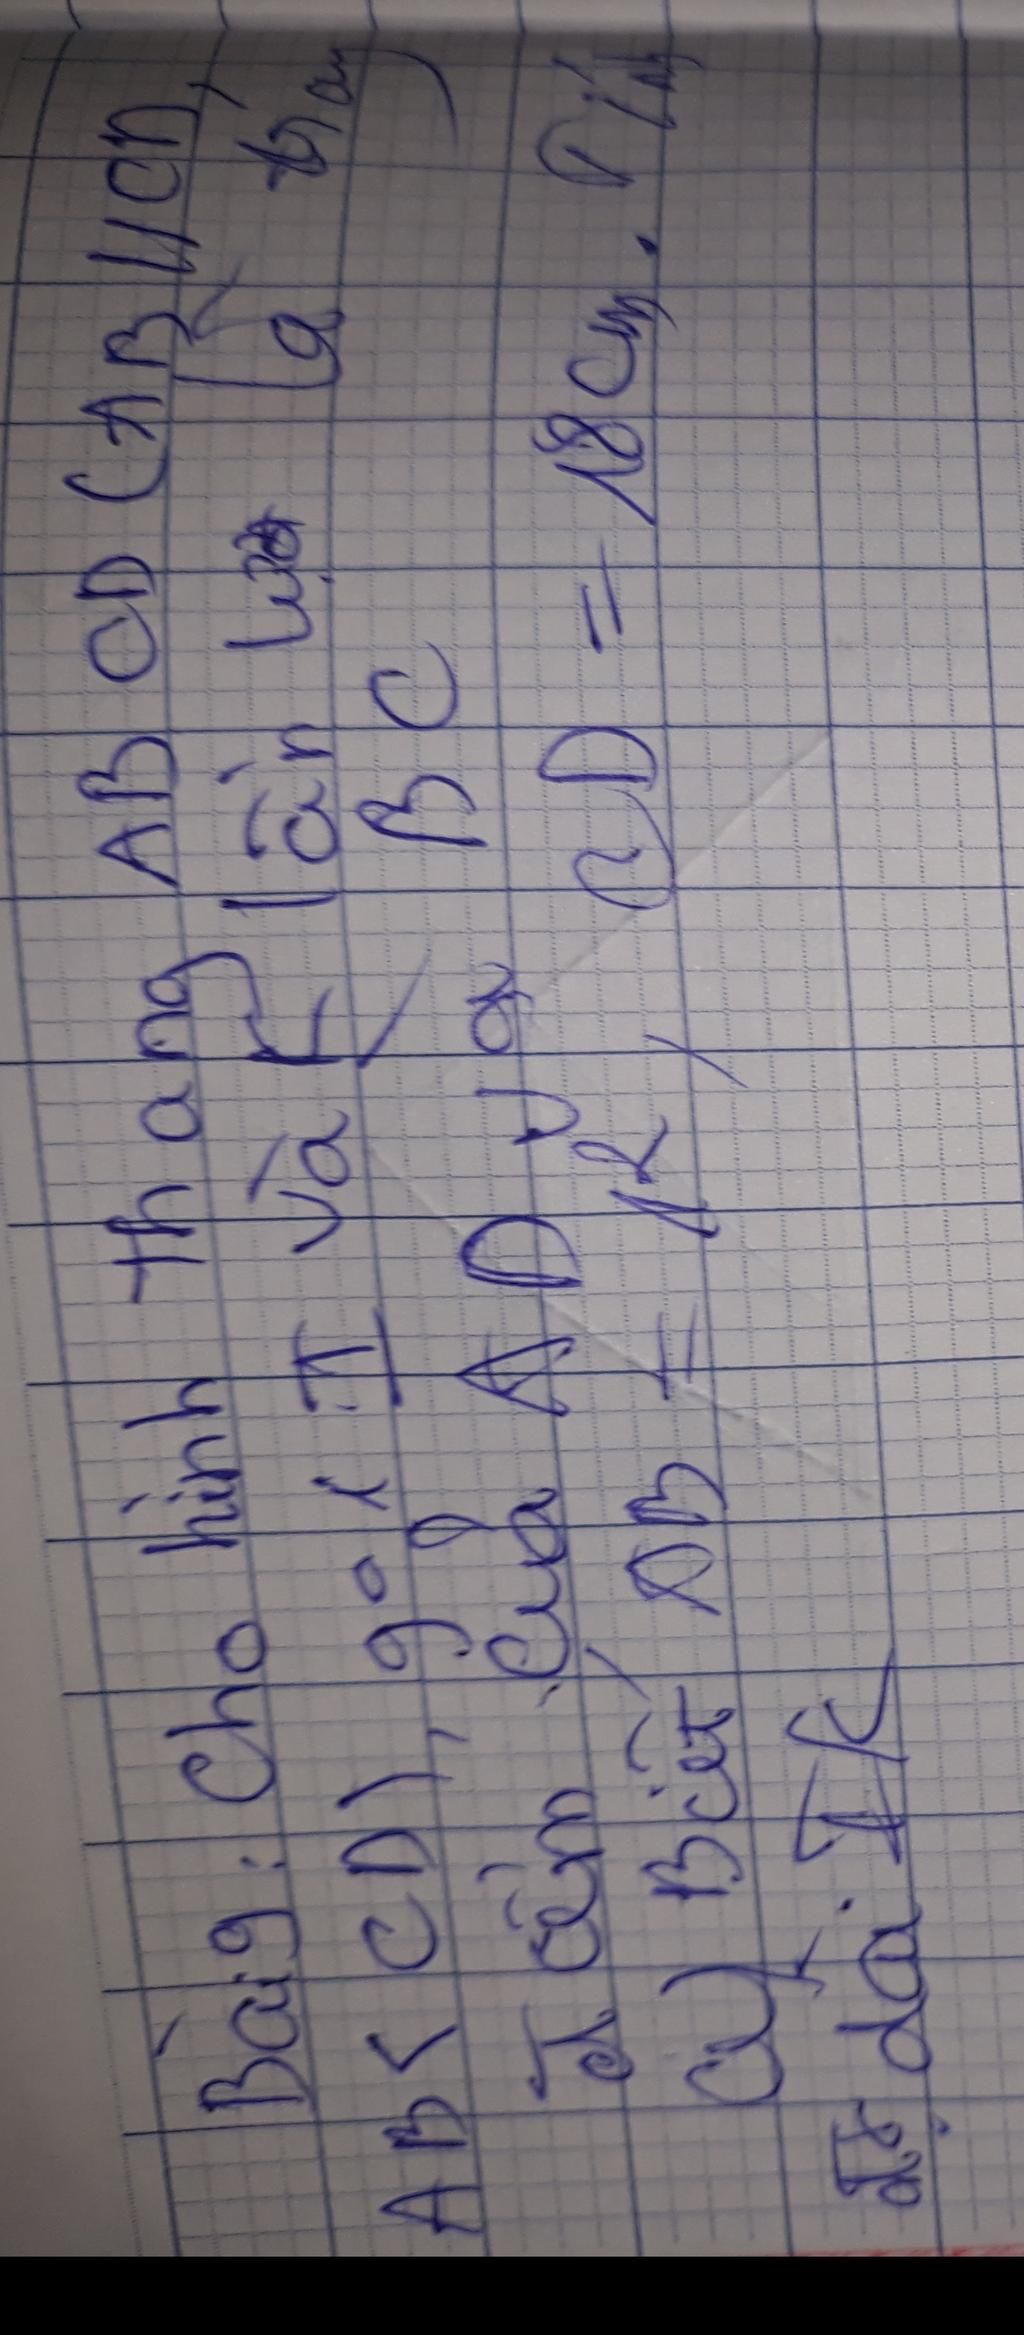 Bài 9: Cho hình thang AB CD (AB // CD,
AB < CD), gọi I và K lần lượt là trung
điểm của AD và BC
a) Biết AB = 12, CD = 18 cm. Tính
độ dài IK